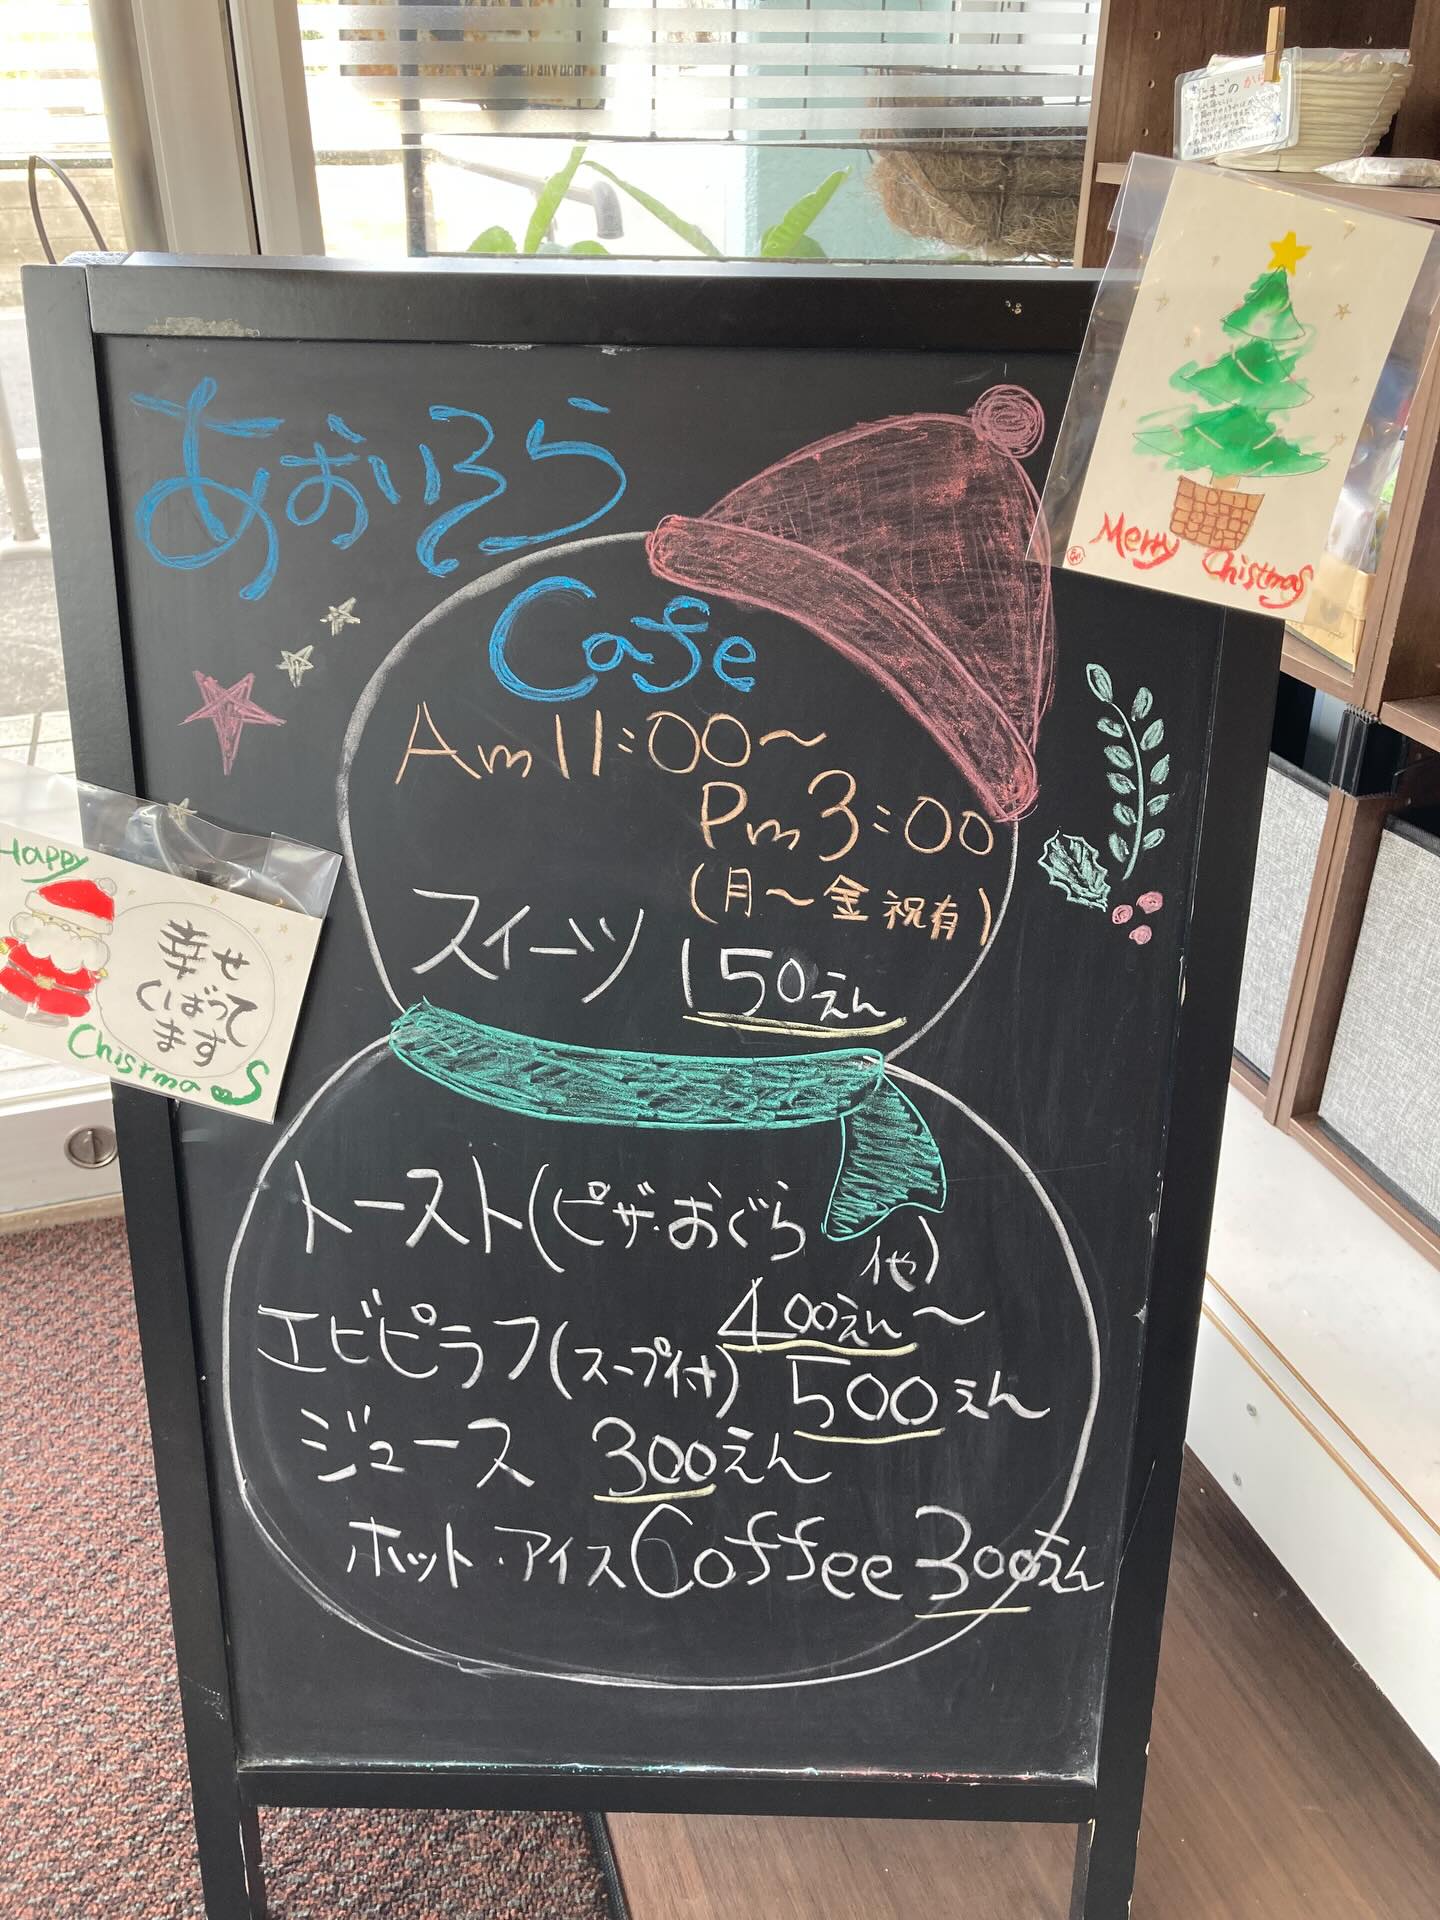 あおいそら
Cafe
Am11:00〜
Pm3:00
(月〜金祝有)
スイーツ 150えん
トースト(ピザ・おぐら
他)
400えん〜
エビピラフ(スープ付) 500えん
ジュース 300えん
ホット・アイスCoffee 300えん
Happy
幸せ
くばって
ます
Chistmas
Merry Chistmas
たまごの から